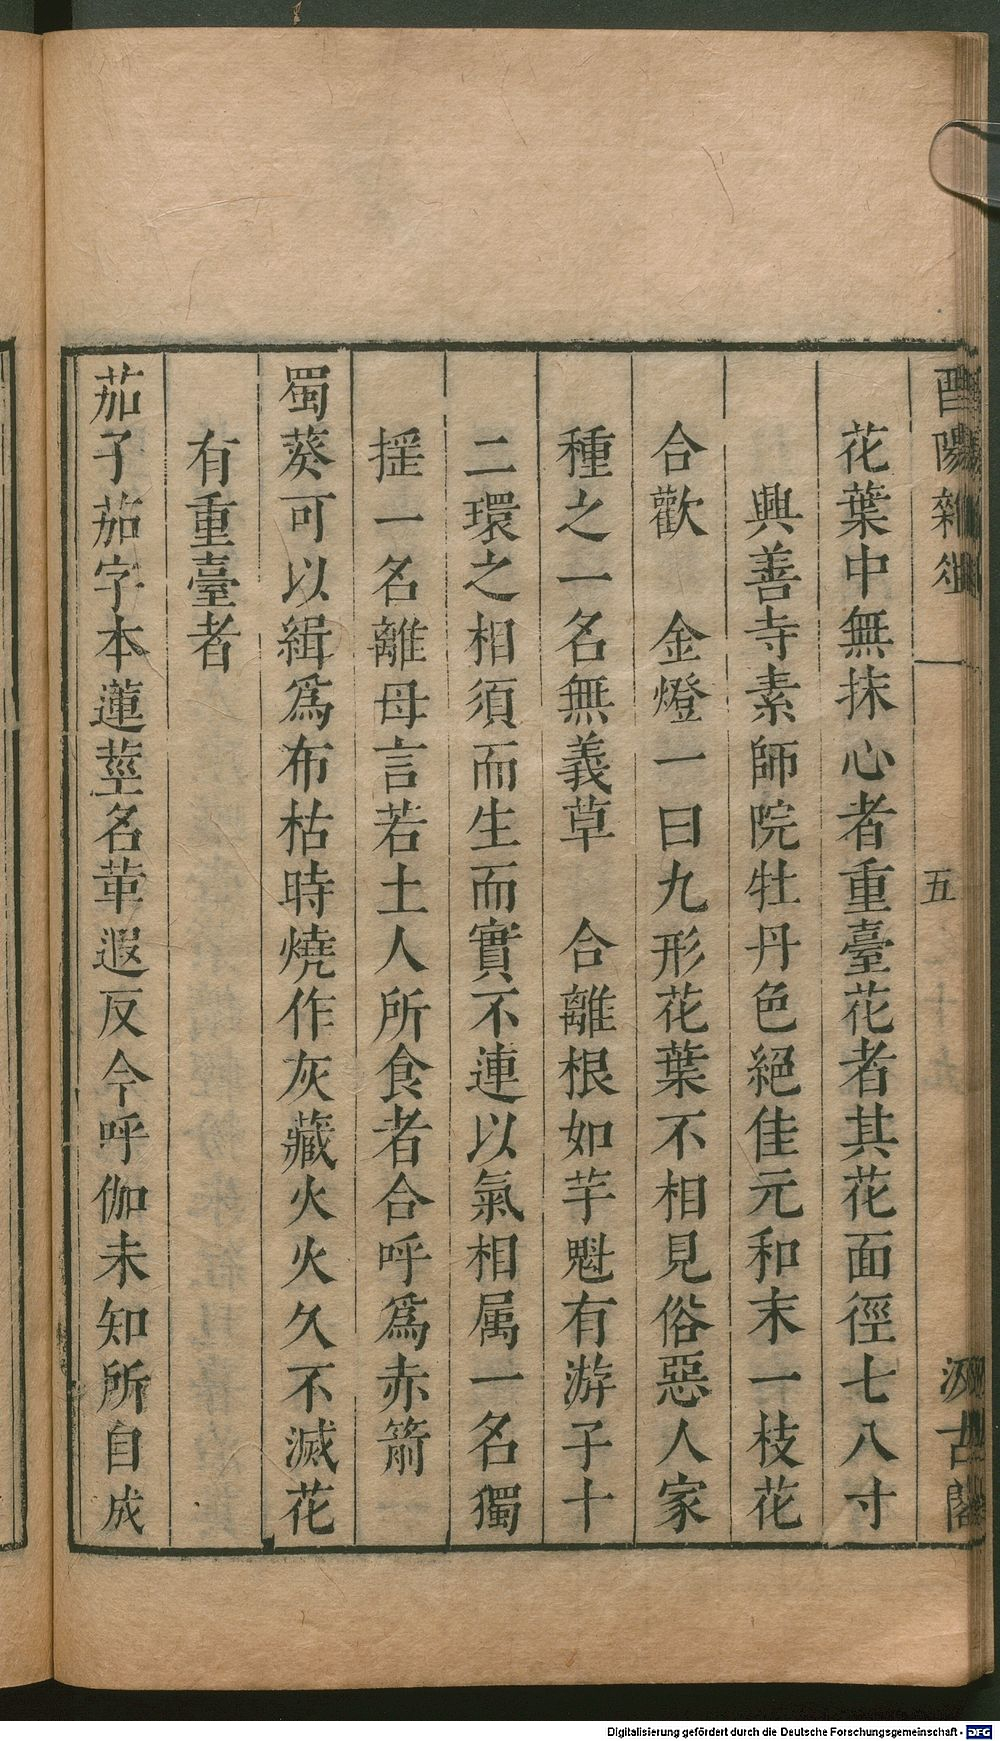 酉陽雜俎
五
汲古閣
花葉中無抹心者重臺花者其花面徑七八寸
興善寺素師院牡丹色絕佳元和末一枝花
合歡　金燈一曰九形花葉不相見俗惡人家
種之一名無義草　合離根如芋魁有游子十
二環之相須而生而實不連以氣相属一名獨
揺一名離母言若土人所食者合呼爲赤箭
蜀葵可以緝爲布枯時燒作灰藏火火久不滅花
有重臺者
茄子茄字本蓮莖名革遐反今呼伽未知所自成
Digitalisierung gefördert durch die Deutsche Forschungsgemeinschaft - DFG